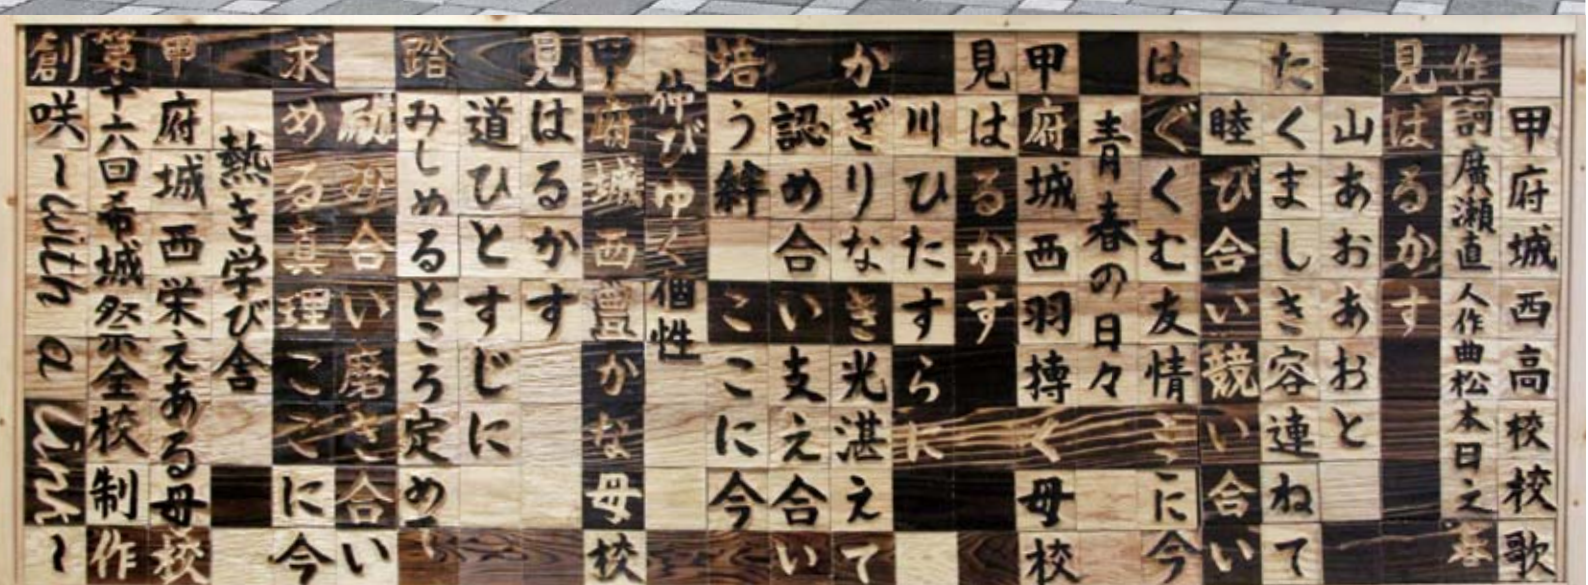 甲府城西高校校歌
作詞廣瀬直人作曲松本日之春
見はるかす
山あおあおと
たくましき容連ねて
睦び合い競い合い
はぐくむ友情ここに今
青春の日々
甲府城西羽搏く母校
見はるかす
川ひたすらに
かぎりなき光湛えて
認め合い支え合い
培う絆 ここに今
伸びゆく個性
甲府城西豊かな母校
見はるかす
道ひとすじに
踏みしめるところ定めて
励み合い磨き合い
求める真理ここに今
熱き学び舎
甲府城西栄えある母校
第十六回希城祭全校制作
創咲~with a Link~